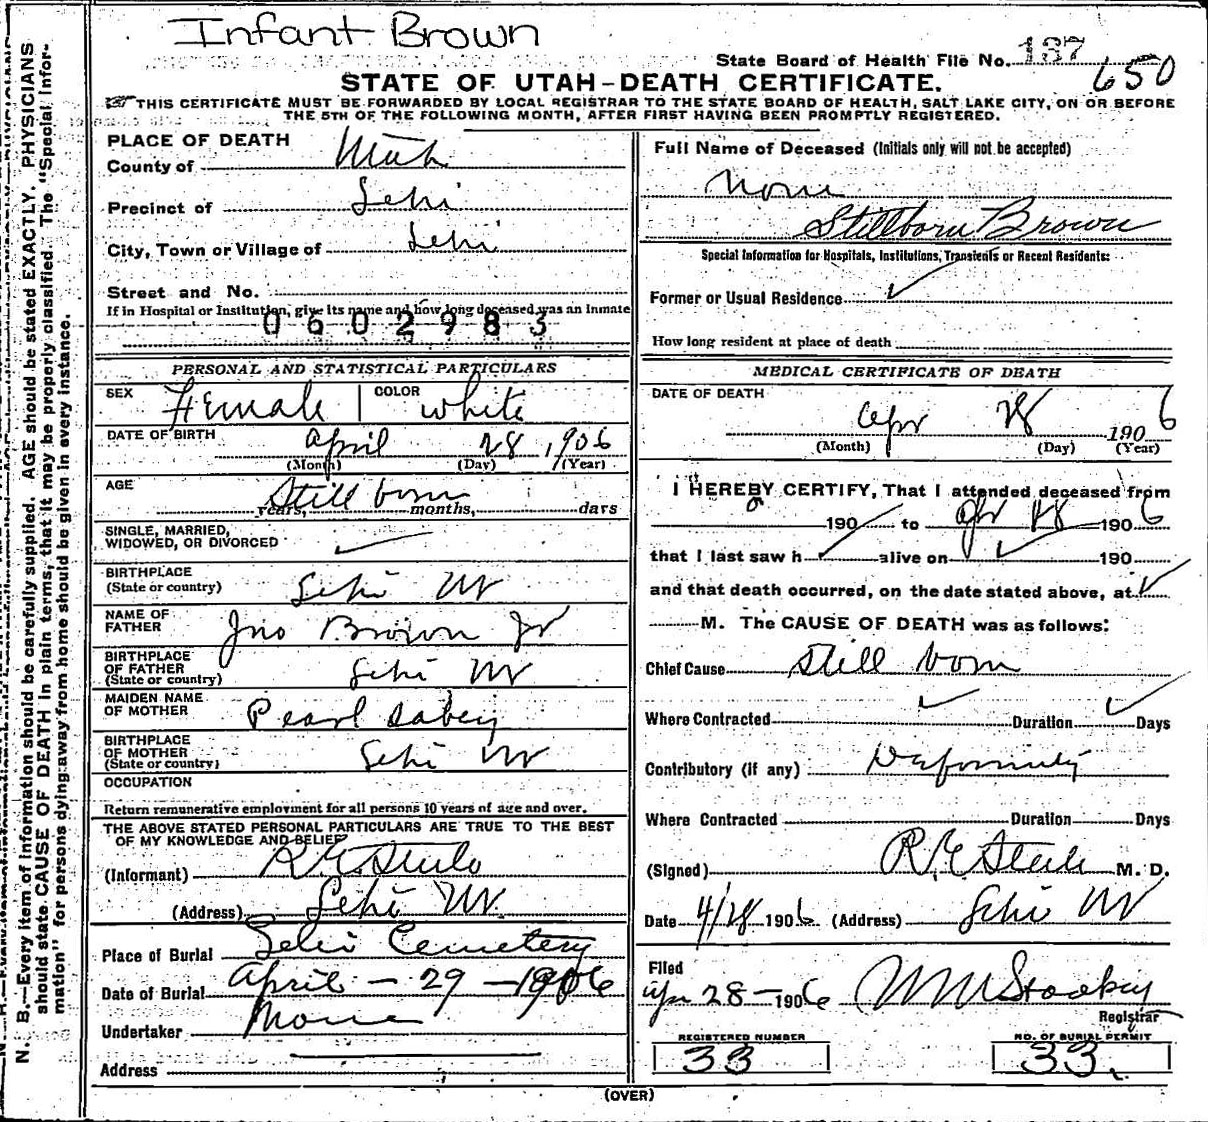 Infant Brown
State Board of Health File No. 137
650
STATE OF UTAH-DEATH CERTIFICATE.
THIS CERTIFICATE MUST BE FORWARDED BY LOCAL REGISTRAR TO THE STATE BOARD OF HEALTH, SALT LAKE CITY, ON OR BEFORE
THE 5TH OF THE FOLLOWING MONTH, AFTER FIRST HAVING BEEN PROMPTLY REGISTERED.
N. B.—Every item of information should be carefully supplied. AGE should be stated EXACTLY. PHYSICIANS
should state CAUSE OF DEATH in plain terms, that it may be properly classified. The "Special Infor-
mation" for persons dying away from home should be given in every instance.
PLACE OF DEATH
County of Utah
Precinct of Lehi
City, Town or Village of Lehi
Street and No.
If in Hospital or Institution, give its name and how long deceased was an Inmate
0602983
PERSONAL AND STATISTICAL PARTICULARS
SEX Female COLOR white
DATE OF BIRTH april 28, 1906
(Month) (Day) (Year)
AGE Still born
years, months, days
SINGLE, MARRIED,
WIDOWED, OR DIVORCED
BIRTHPLACE
(State or country) Lehi Ut
NAME OF
FATHER Jno Brown Jr
BIRTHPLACE
OF FATHER
(State or country) Lehi Ut
MAIDEN NAME
OF MOTHER Pearl Sabey
BIRTHPLACE
OF MOTHER
(State or country) Lehi Ut
OCCUPATION
Return remunerative employment for all persons 10 years of age and over.
THE ABOVE STATED PERSONAL PARTICULARS ARE TRUE TO THE BEST
OF MY KNOWLEDGE AND BELIEF
(Informant) R. E. Steele
(Address) Lehi Ut.
Place of Burial Lehi Cemetery
Date of Burial April - 29 - 1906
Undertaker None
Address
Full Name of Deceased (Initials only will not be accepted)
None
Stillborn Brown
Special Information for Hospitals, Institutions, Transients or Recent Residents:
Former or Usual Residence
How long resident at place of death
MEDICAL CERTIFICATE OF DEATH
DATE OF DEATH
Apr 28 1906
(Month) (Day) (Year)
I HEREBY CERTIFY, That I attended deceased from
190 to Apr 28 1906
that I last saw h alive on 190
and that death occurred, on the date stated above, at
M. The CAUSE OF DEATH was as follows:
Chief Cause Still born
Where Contracted Duration Days
Contributory (if any) Deformity
Where Contracted Duration Days
(Signed) R. E. Steele M. D.
Date 4/28 1906 (Address) Lehi Ut
Filed
Apr 28 - 1906 Stookey
Registrar
REGISTERED NUMBER
33
NO. OF BURIAL PERMIT
33.
(OVER)